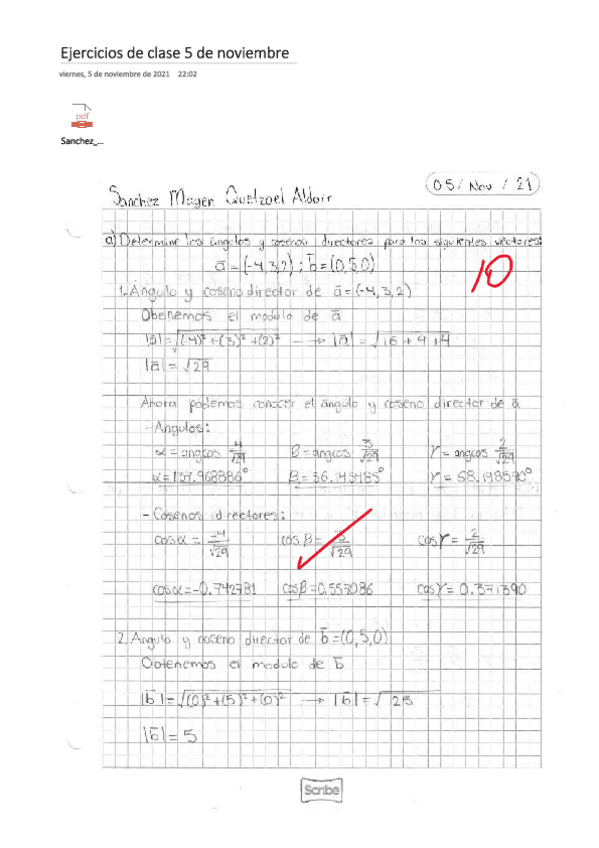 Ejercicios de clase 5 de noviembre
viernes, 5 de noviembre de 2021 22:02
pdf
Sanchez_...
05/Nov/21
Sanchez Magen Quetzael Aldair
a) Determine los ángulos y cosenos directores para los siguientes vectores:
ā=(-4,3,2); b̄=(0,5,0)
10
1. Ángulo y coseno director de ā=(-4,3,2)
Obenemos el modulo de ā
|ā|=√(-4)²+(3)²+(2)² → |ā|=√16+9+4
|ā|=√29
Ahora podemos conocer el ángulo y coseno director de ā
-Angulos:
α=angcos 4/√29 β=angcos 3/√29 γ=angcos 2/√29
α=137.968886° β=56.145485° γ=68.198590°
-Cosenos directores:
cosα=-4/√29 cosβ=3/√29 cosγ=2/√29
cosα=-0.742781 cosβ=0.557086 cosγ=0.371390
2. Angulo y coseno director de b̄=(0,5,0)
Obtenemos el modulo de b̄
|b̄|=√(0)²+(5)²+(0)² → |b̄|=√25
|b̄|=5
Scribe